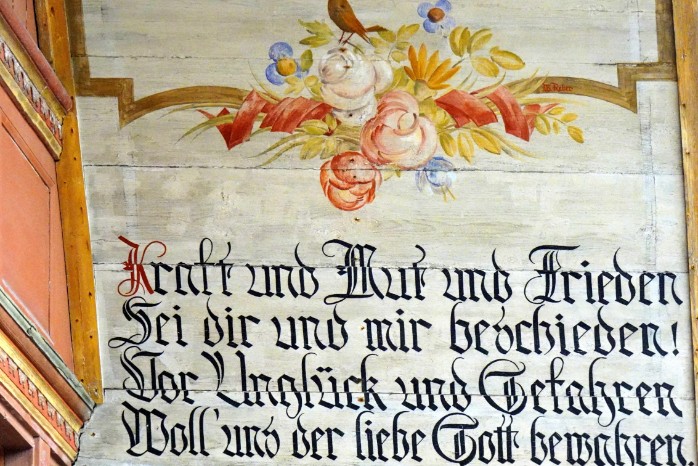 Kraft und Mut und Frieden
Sei dir und mir beschieden!
Vor Unglück und Gefahren
Woll' uns der liebe Gott bewahren.